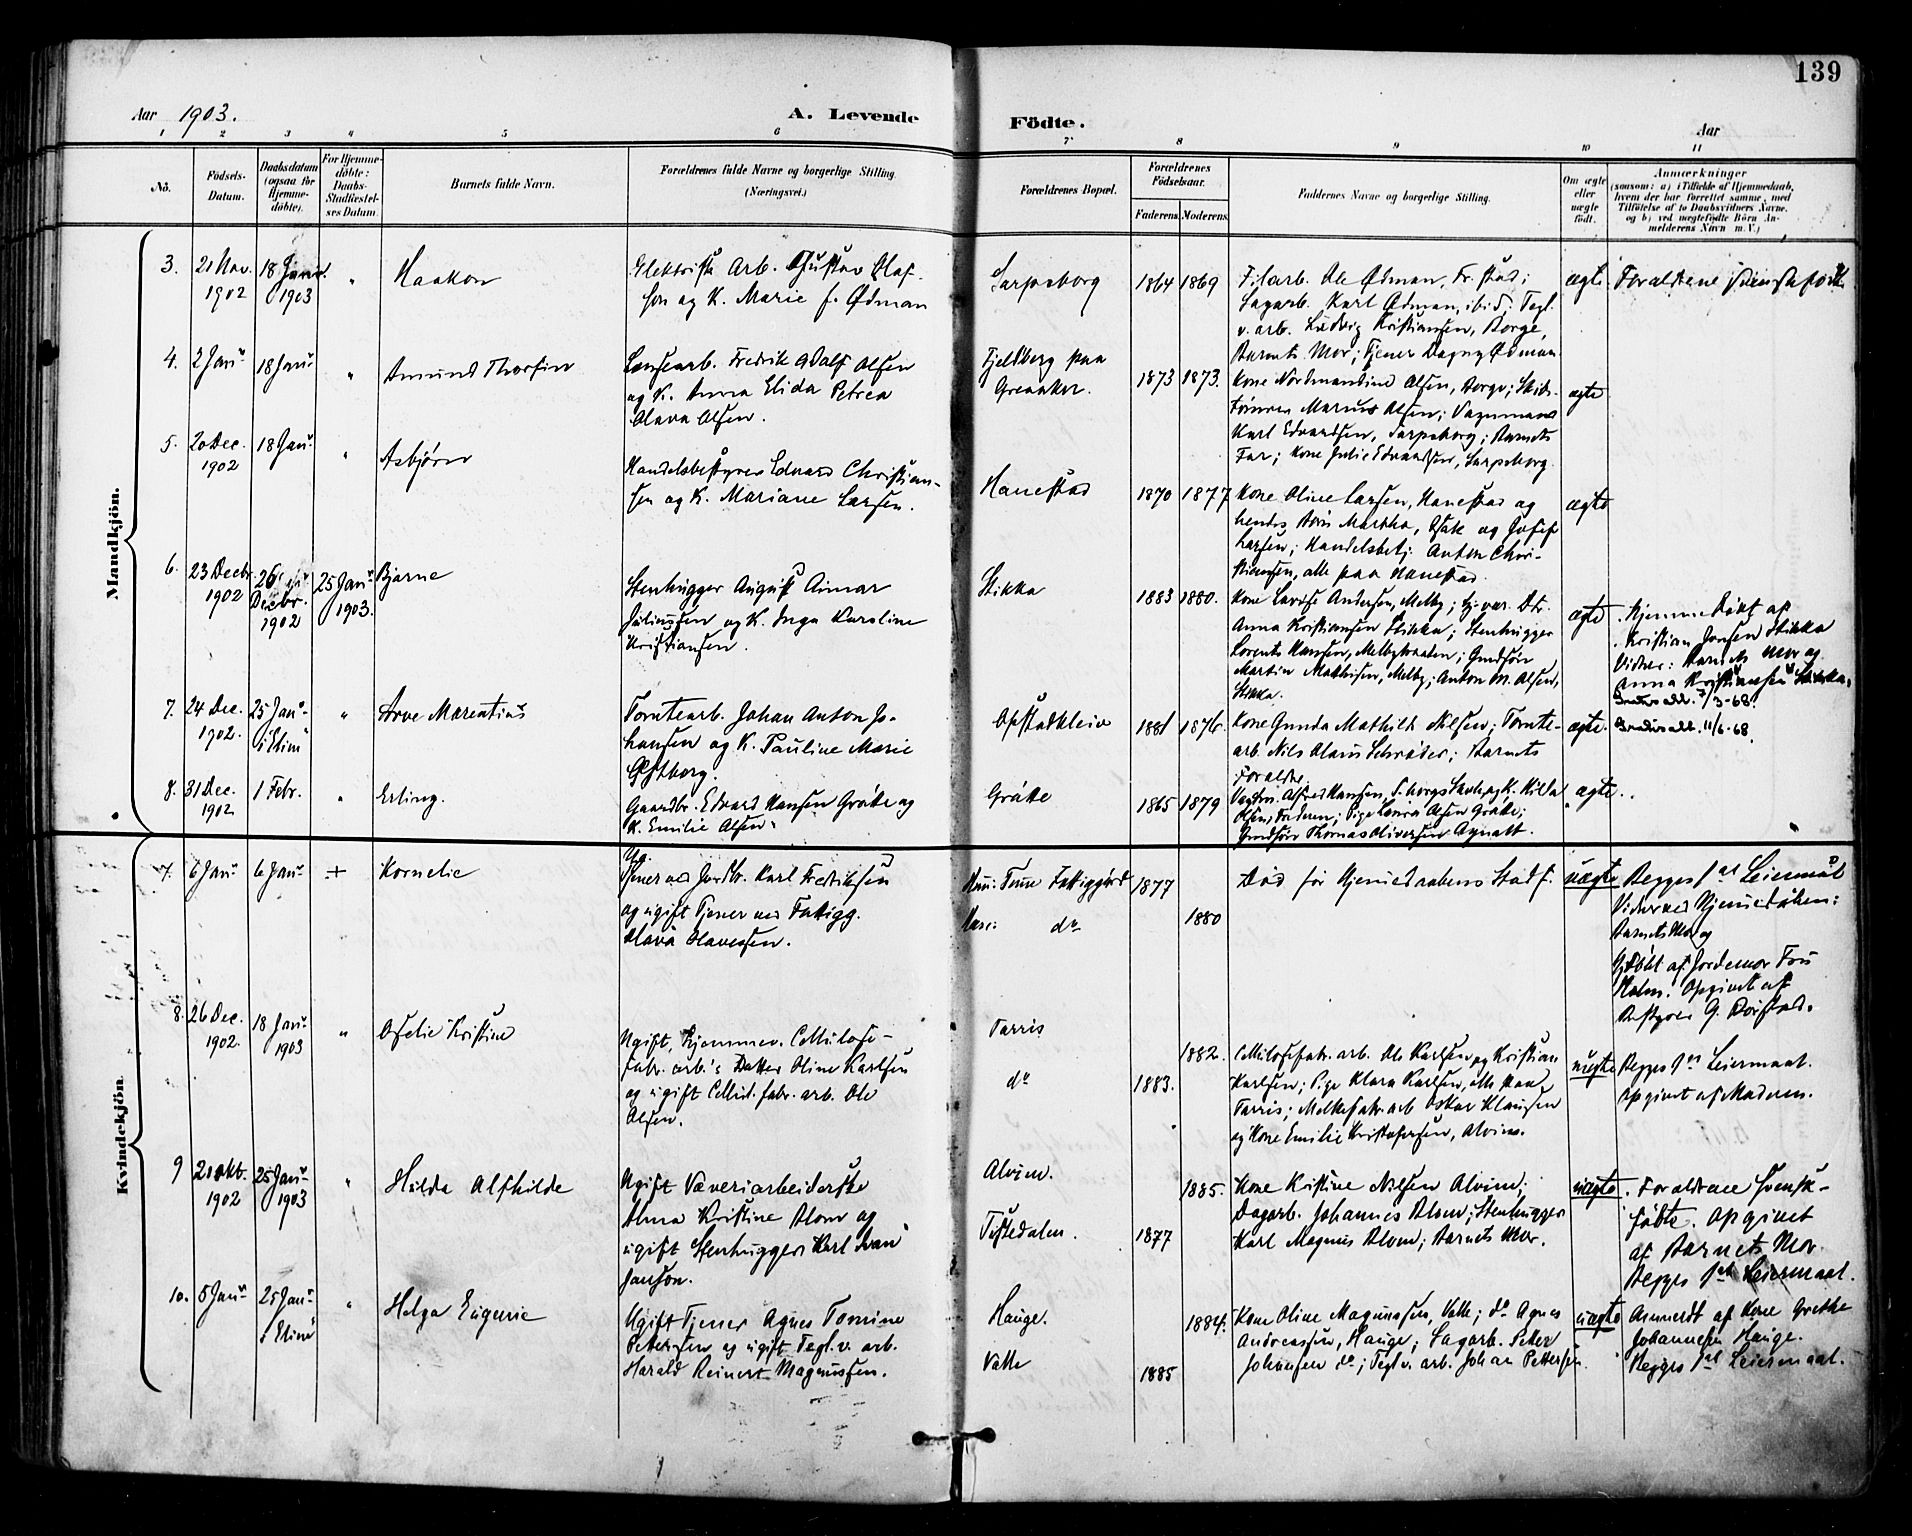 139
Aar 1903.
A. Levende Födte.
Aar
1 2 3 4 5 6 7 8 9 10 11
No.
Födsels-
Datum.
Daabsdatum
(ogsaa for
Hjemme-
döbte).
For Hjemme-
döbte:
Daabs-
Stadfæstel-
ses Datum.
Barnets fulde Navn.
Forældrenes fulde Navne og borgerlige Stilling
(Næringsvei.)
Forældrenes Bopæl.
Forældrenes
Födselsaar.
Faderens. Moderens.
Faddernes Navne og borgerlige Stilling.
Om ægte
eller
uægte
födt.
Anmærkninger
(saasom: a) i Tilfælde af Hjemmedaab,
hvem der har forrettet samme, med
Tilföielse af to Daabsvidners Navne,
og b) ved uægtefödte Börn An-
melderens Navn m. V.)
Mandkjön.
3.
21 Nov.
1902
18 Janr.
1903
"
Haakon
Elektrisk Arb. Gustav Olaf-
son og K. Marie f. Ødman
Sarpsborg
1864 1869
Filarb. Ole Ødman, Fr.stad;
Sagarb. Karl Ødman, ibid; Tegl-
v. arb. Ludvig Kristiansen, Borge,
Barnets Mor; Tjener Dagny Ødman
ægte
Forældrene svenskfödt.
4.
2 Janr
18 Janr
"
Amund Thorfin
Lænsearb. Fredrik Adolf Olsen
og K. Anna Elida Petrea
Olava Olsen.
Fjeldberg paa
Greaaker.
1873 1873.
Kone Nordmandine Olsen, Borge; Skibs-
tömmer Marius Olsen; Vognmand
Karl Edvardsen, Sarpsborg; Barnets
Far; Kone Julie Edvardsen, Sarpsborg.
ægte
5.
20 Dec.
1902
18 Janr
"
Asbjørn
Handelsbestyrer Edvard Christian-
sen og K. Mariane Larsen.
Hanestad
1870 1877
Kone Oline Larsen, Hanestad og
hendes Börn Martha, Agate og Josef
Larsen; Handelsbetj. Anton Chri-
stiansen, alle paa Hanestad.
ægte
6.
23 Decbr
1902
26
Decbr.
1902
25 Janr
1903.
Bjarne
Stenhugger August Aimar
Juliussen og K. Inga Karoline
Kristiansen.
Stikka
1883 1880.
Kone Lovise Andersen, Melby; Hj.vær. Dtr.
Anna Kristiansen Stikka; Stenhugger
Lorents Hansen, Melbybraaten; Gmdsön
Martin Mathisen, Melby; Anton M. Olsen,
Stikka.
ægte
Hjemmedöbt af
Kristian Jonsen Stikka
Vidner: Barnets Mor og
Anna Kristiansen Stikka.
7/3-68.
7.
24 Dec.
1902.
25 Janr
i "Elim"
"
Arve Marentius
Tomtearb. Johan Anton Jo-
hansen og K. Pauline Marie
Østborg.
Opstadkleiv
1881 1876.
Kone Gunda Mathilde Nilsen; Tomte-
arb. Nils Olaus Schrøder; Barnets
Forældre
ægte.
11/6-68.
8.
31 Dec.
1902
1 Febr.
"
Erling.
Gaardbr. Edvard Hansen Gråtte og
K. Emilie Olsen.
Gråtte
1865 1879
Vagtm. Alfred Hansen, S.borg og K. Hilda
Olsen, Faderen; Pige Laura Olsen Gråtte;
Gmdsön Thomas Oliversen Agnalt.
ægte.
Kvindekjön.
7.
6 Janr
6 Janr
+
Kornelie
Ug.
Tjener ved Jordbr. Karl Fredriksen
og ugift Tjener ved Fattigg.
Olava Olavesen.
Han: Tune Fattiggård
Hun: do
1877
1880
Död før Hjemmedaabens Stadf.
uægte
Begges 1ste Leiermål
Vidner ved Hjemmedåben:
Barnets Mor og
Hjdöbt af Jordemor Fru
Holm. Opgivet af
Bestyrer G. Börstad.
8.
26 Dec.
1902.
18 Janr
1903
"
Ofelie Kristine
Ugift, hjemmev. Cellulose-
fabr. arb.'s Datter Oline Karlsen
og ugift Cellul. fabr. arb. Ole
Olsen.
Tarris
do
1882.
1883.
Cellulosefabr. arb. Ole Karlsen og Kristian
Karlsen; Pige Klara Karlsen, alle paa
Tarris; Melkefabr. arb Oskar Klausen
og Kone Emilie Kristofersen, Alvim.
uægte
Begges 1ste Leiermaal.
Opgivet af Moderen.
9
21 Okt.
1902
25 Janr
1903
"
Hilda Alfhilde
Ugift Væveriarbeiderske
Alma Kristine Blom og
ugift Stenhugger Karl Ivan
Janson.
Alvim.
Tistedalen.
1885.
1877
Kone Kristine Nilsen Alvim;
Dagarb. Johannes Blom; Stenhugger
Karl Magnus Blom; Barnets Mor.
uægte
Forældrene svensk-
födte. Opgivet
af Barnets Mor.
Begges 1ste Leiermaal.
10.
5 Janr
25 Janr
i "Elim"
"
Helga Eugenie
Ugift Tjener Agnes Tomine
Pettersen og ugift Tegl.v. arb.
Harald Reinert Magnussen.
Hauge.
Valle
1884.
1885
Kone Oline Magnussen, Valle; do Agnes
Andreassen, Hauge; Sagarb. Petter
Johansen do; Tegl v. arb. Johan Pettersen.
uægte
Anmeldt af Kone Grethe
Johannesen Hauge.
Begges 1ste Leiermaal.